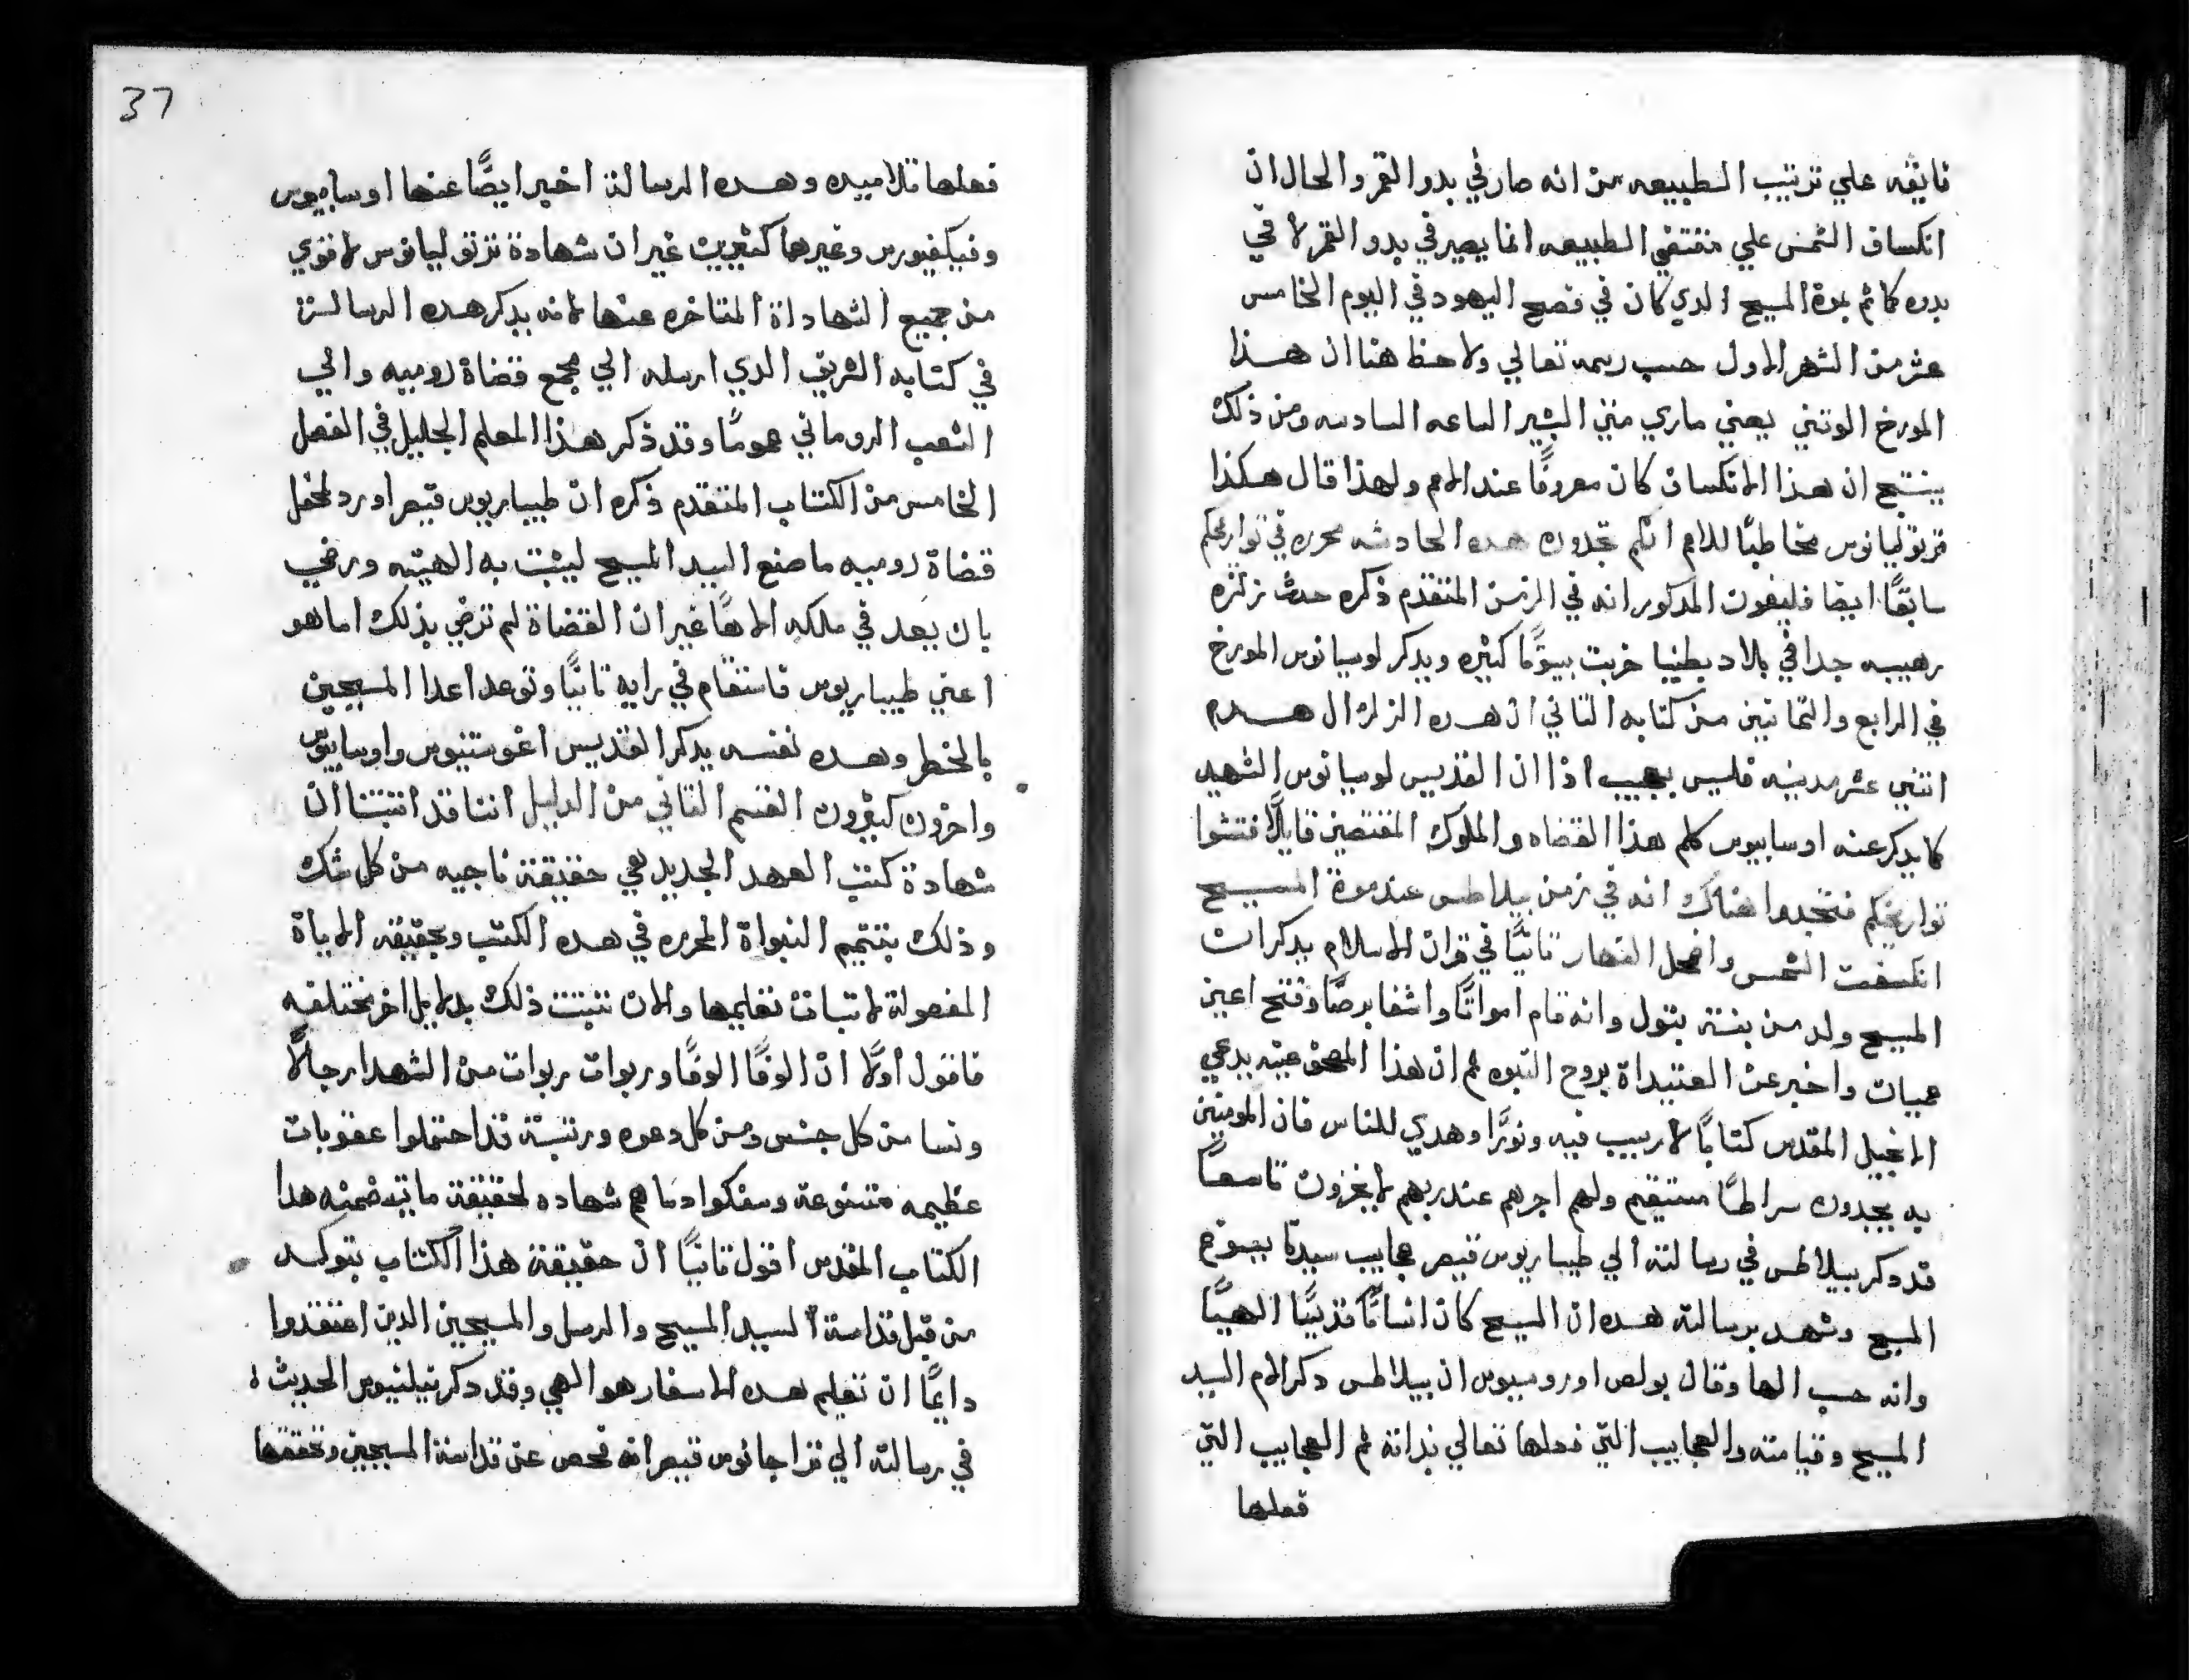 فايقه علي ترتيب الطبيعه من انه صار في بدو القمر والحال ان
انكساف الشمس علي مقتضي الطبيعه انما يصير في بدو القمر لا في
بدره كما تم بموة المسيح الدي كان في فصح اليهود في اليوم الخامس
عشر من الشهر الاول حسب رسمه تعالي ولاحظ هنا ان هـذا
المورخ الوتني يعني ماري متي البشير الساعه السادسه ومن ذلك
ينتج ان هذا الانكساف كان معروفًا عند الامم ولهذا قال هكذا
ترتوليانوس مخاطبًا للامم انكم تجدون هده الحادثه محرره في تواريخكم
سابقًا ايضا فليغون المدكور انه في الزمن المتقدم ذكره حدث زلزله
رهيبه جدا في بلاد بطنيا خربت بيوتًا كثيره ويدكر لوسيانوس المورخ
في الرابع والتمانين من كتابه التاني ان هده الزلزال هـدم
اتني عشر مدينه فليس بعجيب اذا ان القديس لوسيانوس الشهيد
كما يدكر عنه اوسابيوس كلم هذا القضاه والملوك المغتصين قايلًا فتشوا
تواريخكم فتجدوا هناك انه في زمن بيلاطس عند موة المسيح
انكسفت الشمس واضمحل النهار تانيًا في قران الاسلام يدكر ان
المسيح ولد من بنته بتول وانه قام امواتًا واشفا برصًا وفتح اعين
عميان واخبر عن العتيداة بروح النبوه ثم ان هذا المصحف عينه يدعي
الانجيل المقدس كتابًا لا ريب فيه ونورًا وهدي للناس فان المومنين
به يجدون سراطًا مستقيم ولهم اجرهم عند ربهم لا يخزون تاسعًا
قد دكر بيلاطس في رسالته الي طيباريوس قيصر عجايب سيدنا يسوع
المسيح وشهد برسالته هده ان المسيح كان انسانًا قديسًا الهيًا
وانه حسب الها وقال بولص اوروسيوس ان بيلاطس دكر الام السيد
المسيح وقيامته والعجايب التي فعلها تعالي بذاته ثم العجايب التي
فعلها
37
فعلها تلاميده وهـده الرسالة اخبر ايضًا عنها اوسابيوس
ونيكيفورس وغيرهما كثيرين غير ان شهادة ترتوليانوس لاقوي
من جميع الشهاداة المتاخره عنها لانه يدكر هده الرسالـة
في كتابه الشريف الدي ارسله الي مجمع قضاة روميه والي
الشعب الروماني عمومًا وقد ذكر هذا المعلم الجليل في الفصل
الخامس من الكتاب المتقدم ذكره ان طيباريوس قيصر اورد لمحفل
قضاة روميه ما صنع السيد المسيح ليثبت به الهيته ورضي
بان يعد في ملكه الاهًا غير ان القضاة لم ترضي بذلك اما هو
اعني طيباريوس فاستقام في رايه تانيًا وتوعد اعدا المسيحين
بالخطر وهـده نفسه يدكر القديس اغوستنيوس واوسابيوس
واخرون كثيرون القسم التاني من الدليل اننا قد اتبتنا ان
شهادة كتب العهد الجديد هي حقيقة ناجيه من كل شك
وذلك بتتميم النبواة المحرره في هده الكتب وبحقيقة الاياة
المفعولة لاتبات تعليمها والان نتبت ذلك بدلايل اخر مختلفه
فاقول اولًا ان الوفًا الوفًا وربوات ربوات من الشهدا رجالًا
ونسا من كل جنس ومن كل دعوه ورتبة قد احتملوا عقوبات
عظيمه متنوعة وسفكوا دماهم شهاده لحقيقة ما تتضمنه هدا
الكتاب المقدس اقول تانيًا ان حقيقة هذا الكتاب يتوكـد
من قبل قداسة السيد المسيح والرسل والمسيحين الدين اعتقدوا
دايمًا ان تعليم هده الاسفار هو الهي وقد دكر تيلينيوس الحديث
في رسالته الي تراجانوس قيصر انه فحص عن قداسة المسيحين وتحققها